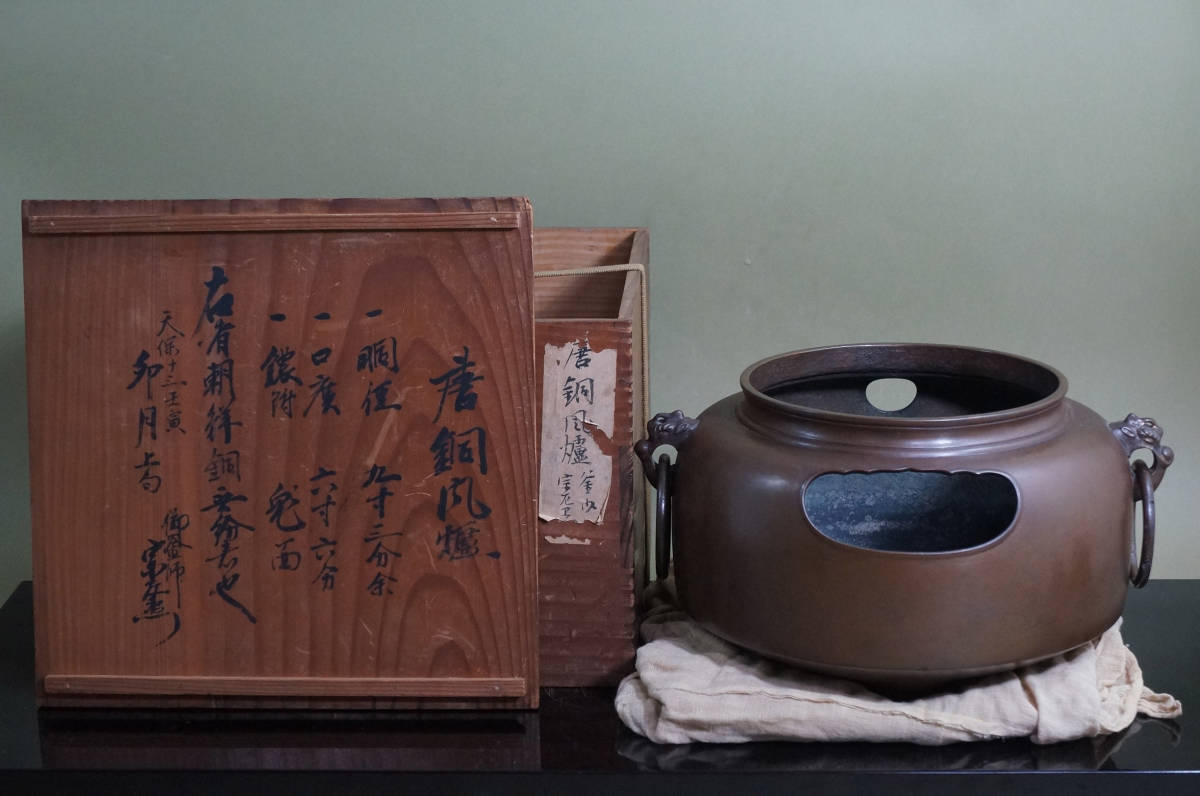 唐銅風爐
一 胴径 九寸三分余
一 口廣 六寸六分
一 鐶附 鬼面
右者朝鮮銅無紛者也
天保十三壬寅
卯月上旬
御釜師
唐銅風爐